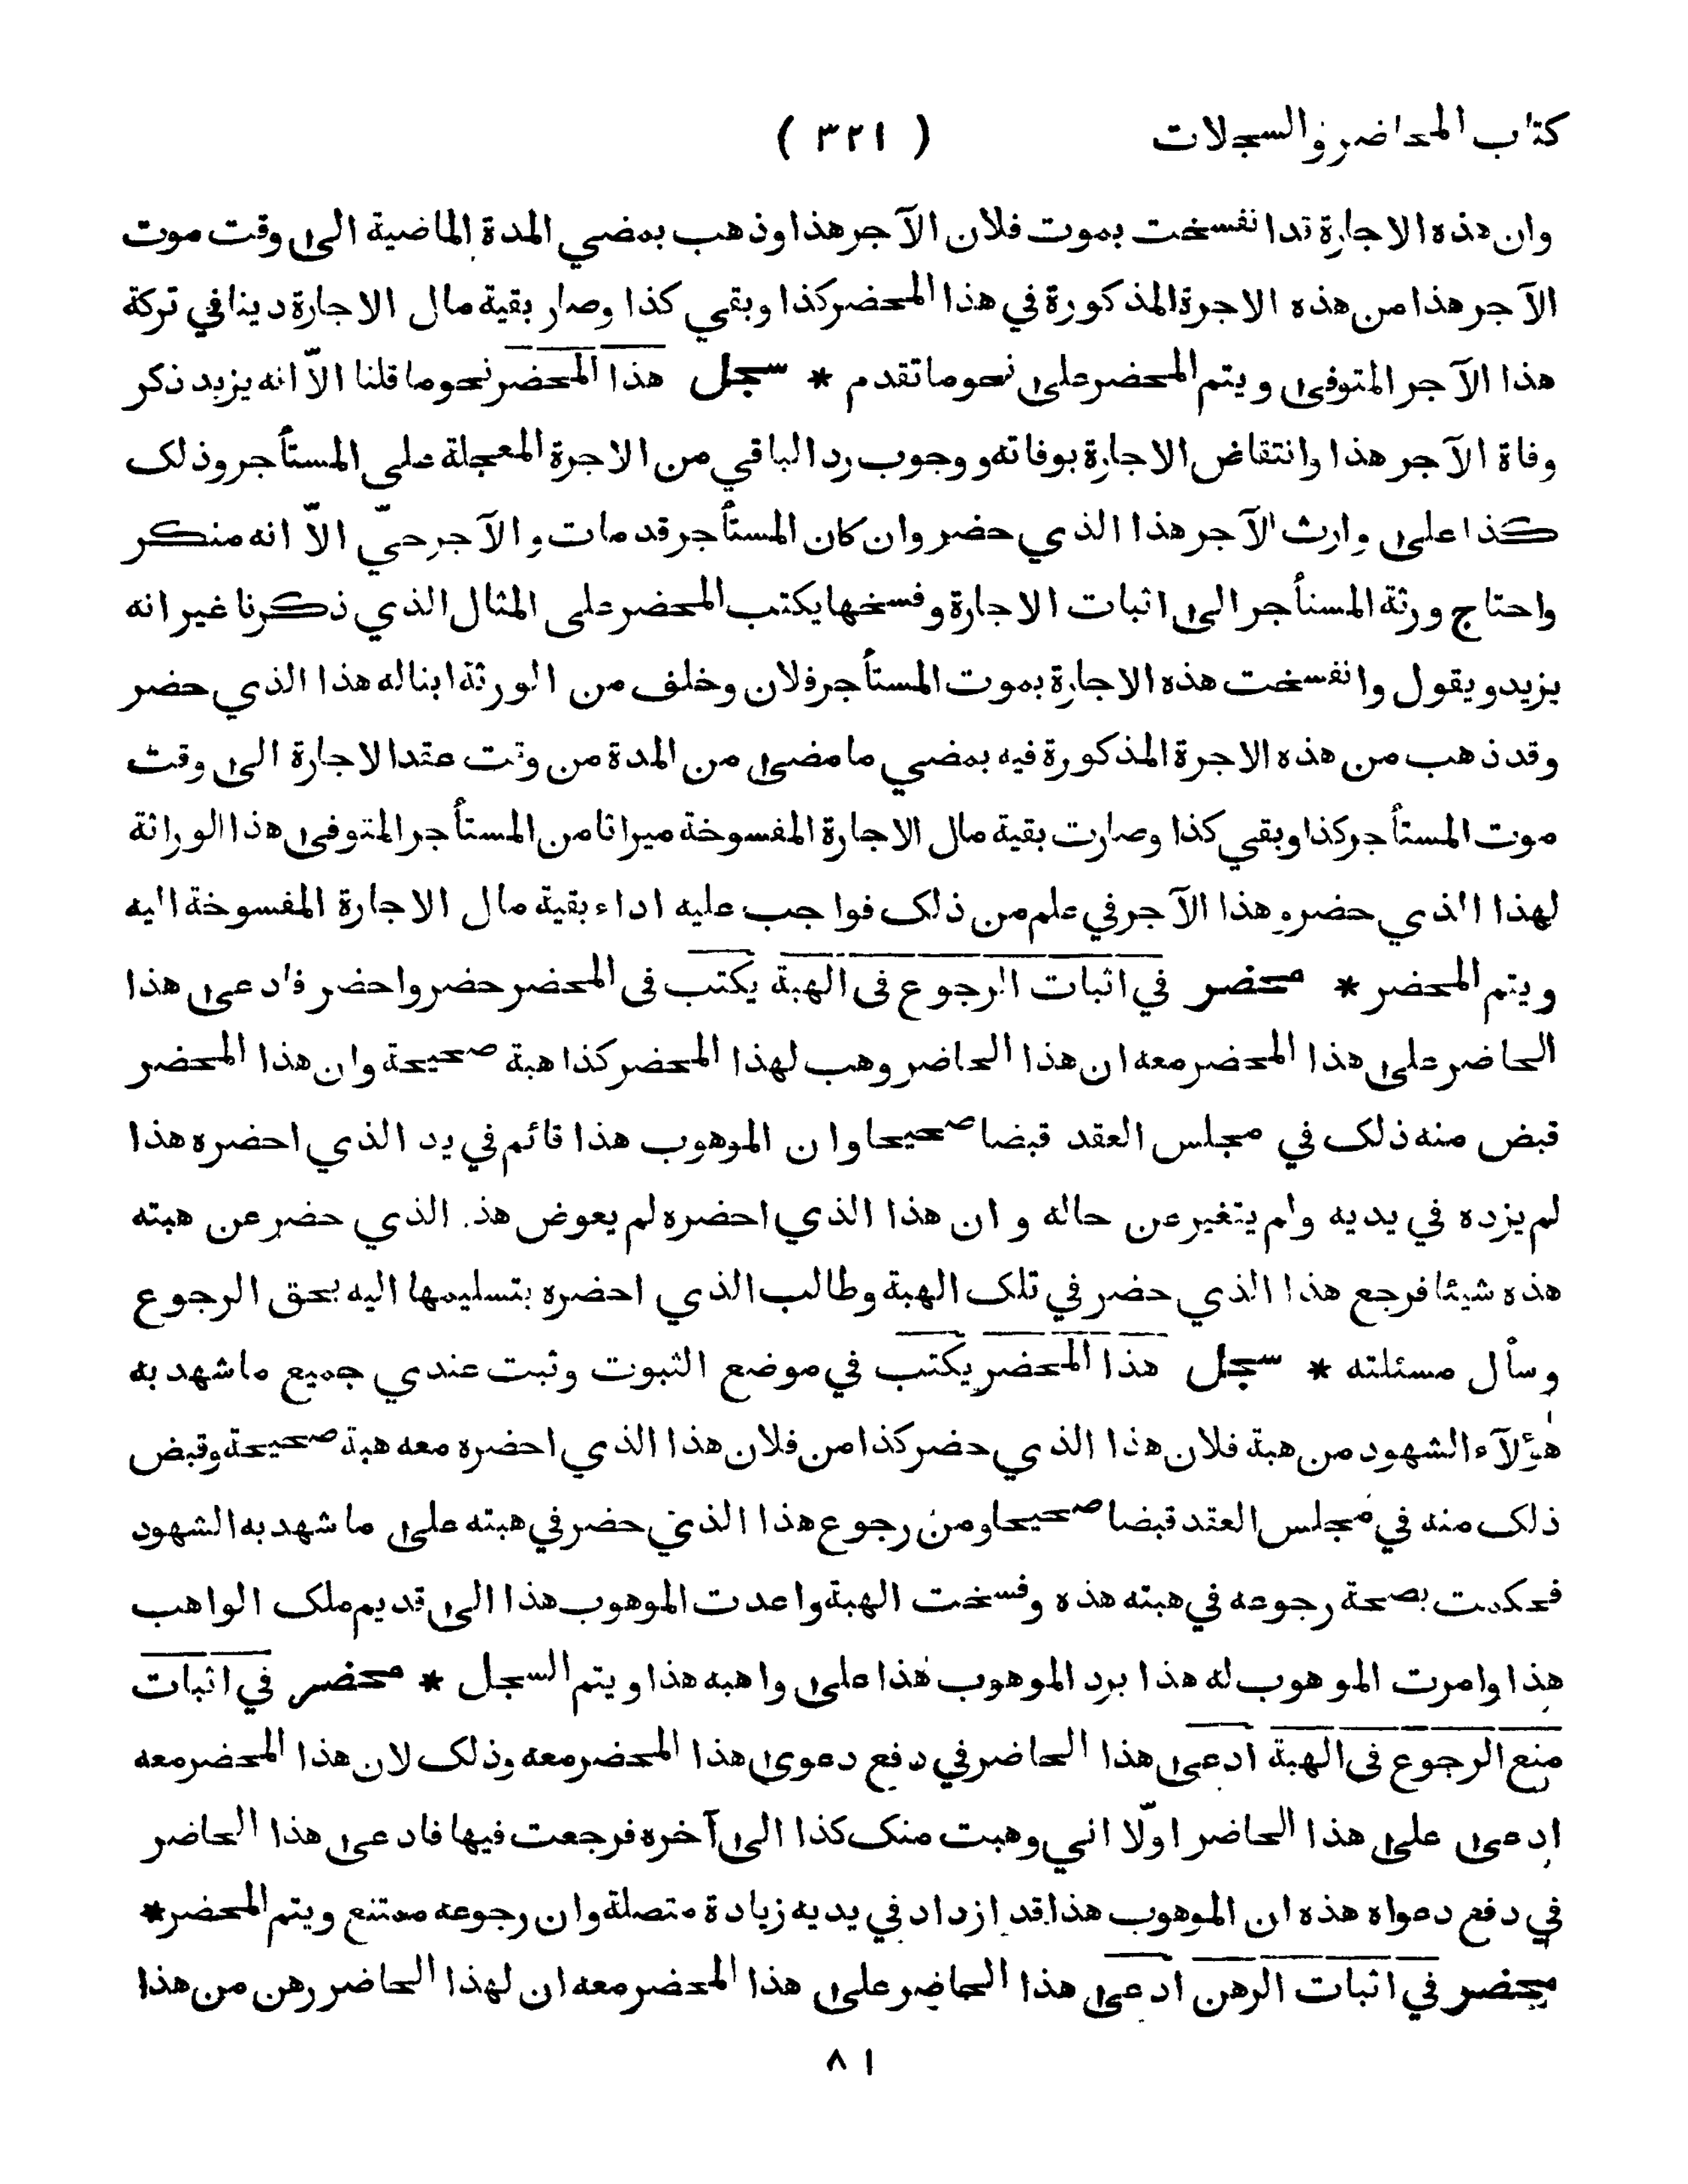 كتاب المحاضر والسجلات ( ٣٢١ )
وان هذه الاجارة قد انفسخت بموت فلان الآجر هذا وذهب بمضي المدة الماضية الى وقت موت
الآجر هذا من هذه الاجرة المذكورة في هذا المحضر كذا وبقي كذا وصار بقية مال الاجارة دينا في تركة
هذا الآجر المتوفى ويتم المحضر على نحو ما تقدم * سجل هذا المحضر نحو ما قلنا الّا انه يزيد ذكر
وفاة الآجر هذا وانتقاض الاجارة بوفاته ووجوب رد الباقي من الاجرة المعجلة على المستأجر وذلك
كذا على وارث الآجر هذا الذي حضر وان كان المستأجر قد مات والآجر حيّ الّا انه منكر
واحتاج ورثة المستأجر الى اثبات الاجارة وفسخها يكتب المحضر على المثال الذي ذكرنا غير انه
يزيد ويقول وانفسخت هذه الاجارة بموت المستأجر فلان وخلف من الورثة ابنا له هذا الذي حضر
وقد ذهب من هذه الاجرة المذكورة فيه بمضي ما مضى من المدة من وقت عقد الاجارة الى وقت
موت المستأجر كذا وبقي كذا وصارت بقية مال الاجارة المفسوخة ميراثا من المستأجر المتوفى هذا الوراثة
لهذا الذي حضر وهذا الآجر في علم من ذلك فواجب عليه اداء بقية مال الاجارة المفسوخة اليه
ويتم المحضر * محضر في اثبات الرجوع في الهبة يكتب في المحضر حضر واحضر فادعى هذا
الحاضر على هذا المحضر معه ان هذا الحاضر وهب لهذا المحضر كذا هبة صحيحة وان هذا المحضر
قبض منه ذلك في مجلس العقد قبضا صحيحا وان الموهوب هذا قائم في يد الذي احضره هذا
لم يزده في يديه ولم يتغير عن حاله و ان هذا الذي احضره لم يعوض هذا الذي حضر عن هبته
هذه شيئا فرجع هذا الذي حضر في تلك الهبة وطالب الذي احضره بتسليمها اليه بحق الرجوع
وسأل مسئلته * سجل هذا المحضر يكتب في موضع الثبوت وثبت عندي جميع ما شهد به
هؤلآء الشهود من هبة فلان هذا الذي حضر كذا من فلان هذا الذي احضره معه هبة صحيحة وقبض
ذلك منه في مجلس العقد قبضا صحيحا ومن رجوع هذا الذي حضر في هبته على ما شهد به الشهود
فحكمت بصحة رجوعه في هبته هذه وفسخت الهبة واعدت الموهوب هذا الى قديم ملك الواهب
هذا وامرت الموهوب له هذا برد الموهوب هذا على واهبه هذا ويتم السجل * محضر في اثبات
منع الرجوع في الهبة ادعى هذا الحاضر في دفع دعوى هذا المحضر معه وذلك لان هذا المحضر معه
ادعى على هذا الحاضر اولّا اني وهبت منك كذا الى آخره فرجعت فيها فادعى هذا الحاضر
في دفع دعواه هذه ان الموهوب هذا قد ازداد في يديه زيادة متصلة وان رجوعه ممتنع ويتم المحضر *
محضر في اثبات الرهن ادعى هذا الحاضر على هذا المحضر معه ان لهذا الحاضر رهن من هذا
٨١